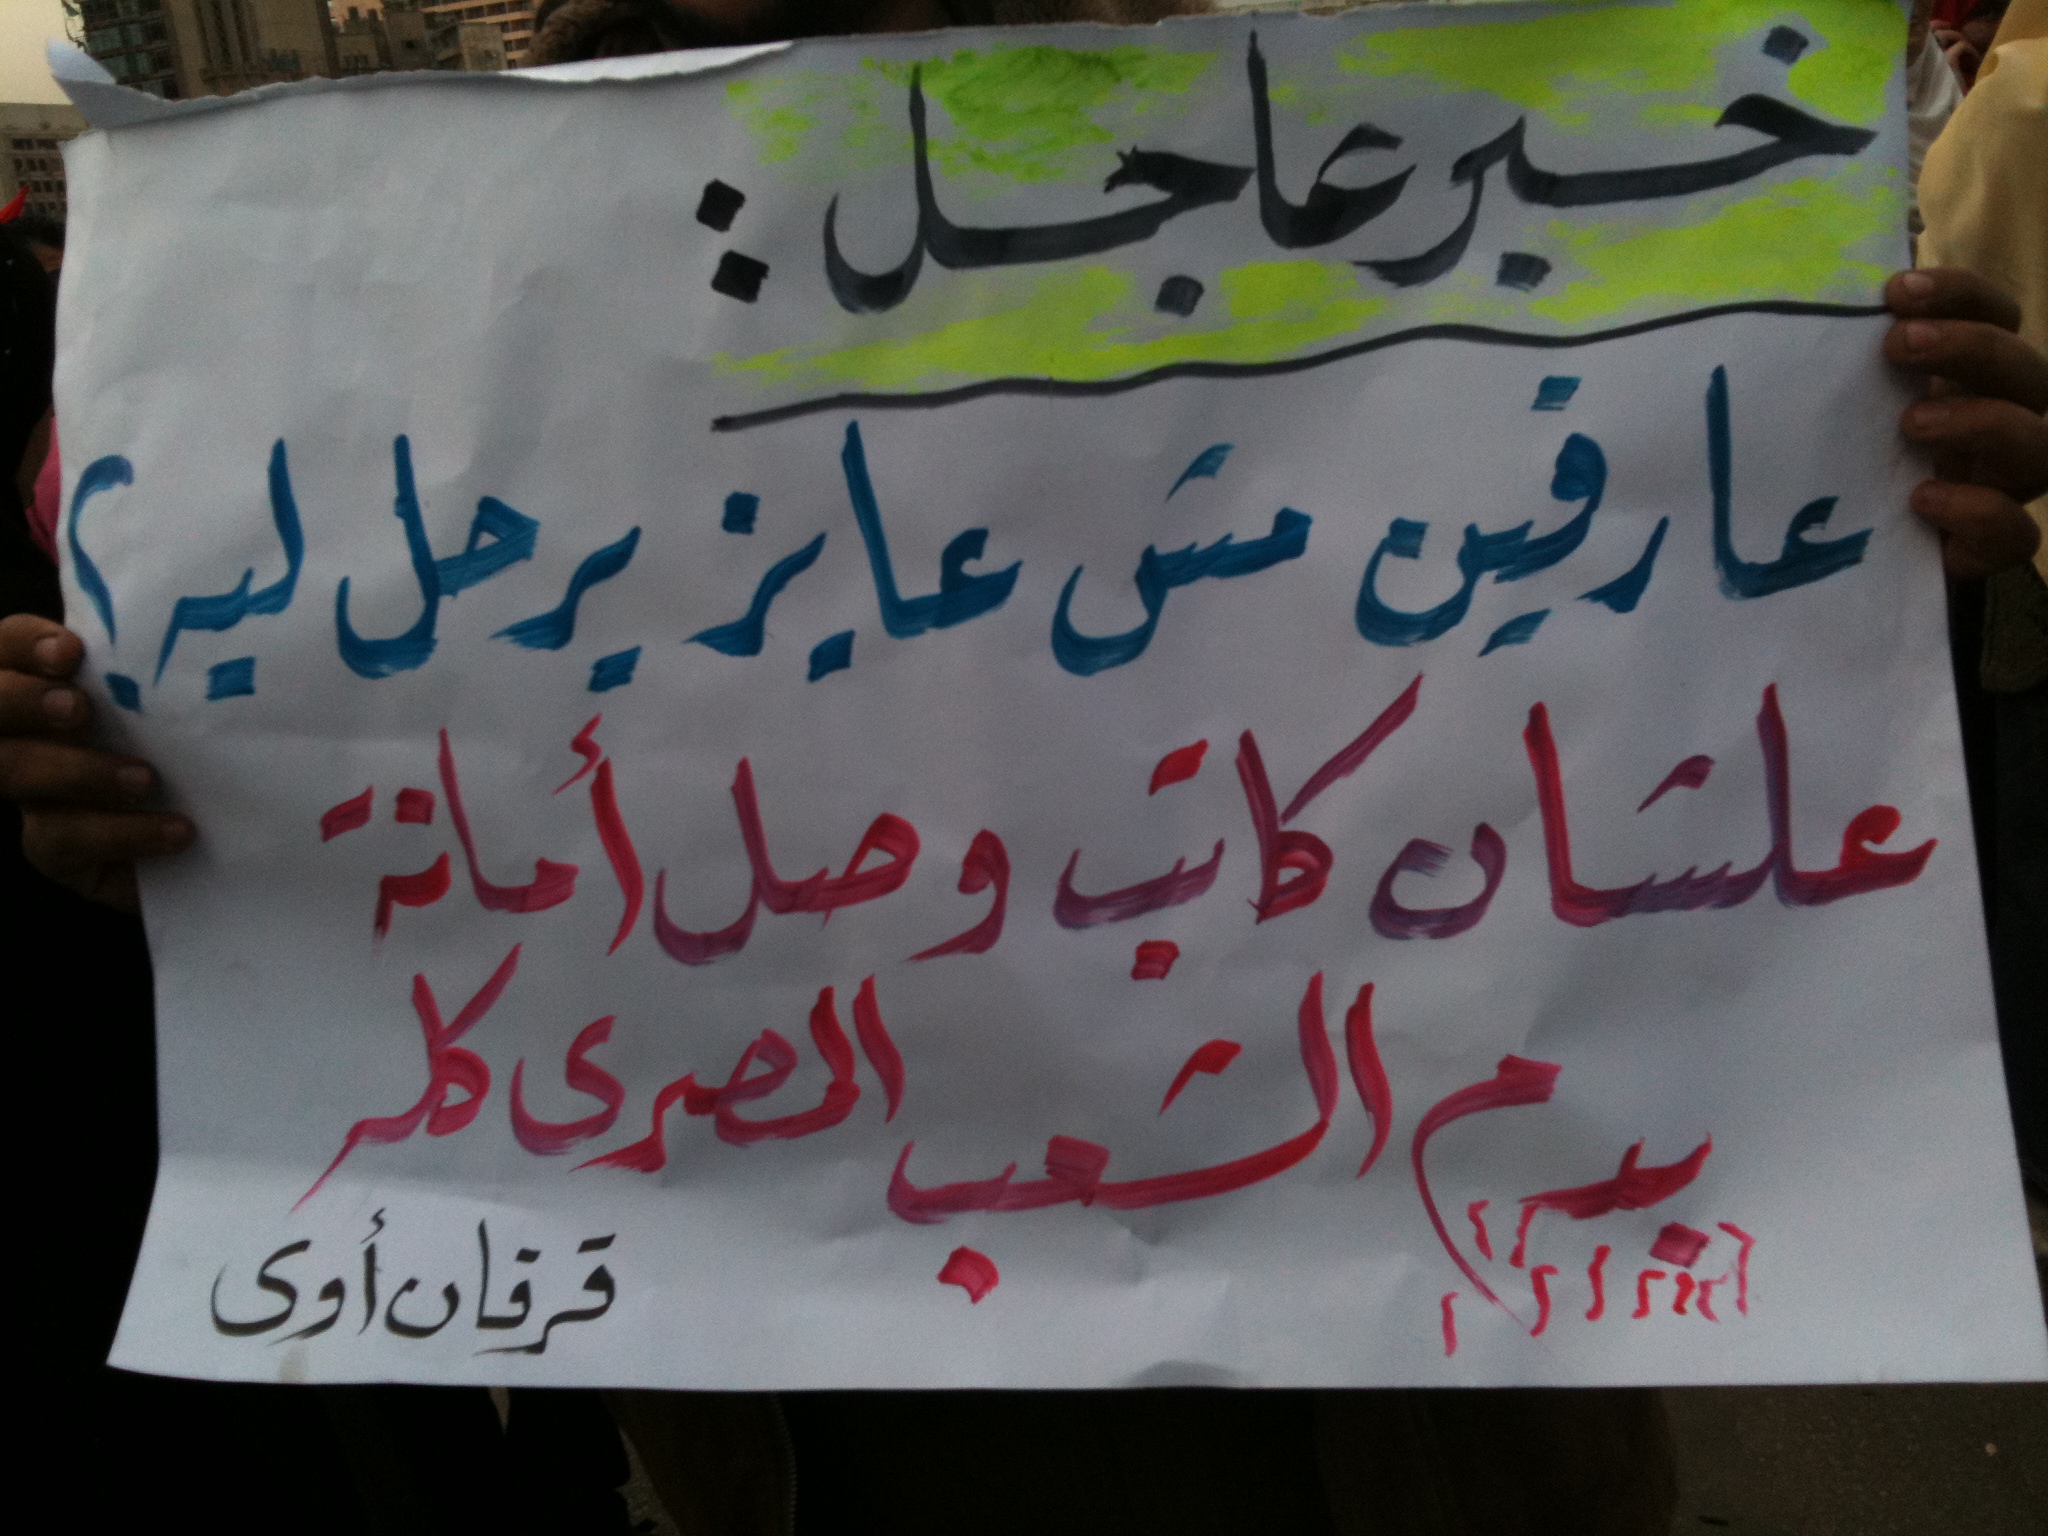 خبر عاجل :
عارفين مش عايز يرحل ليه ؟
علشان كاتب وصل أمانة
بدم الشعب المصرى كله
قرفان أوى